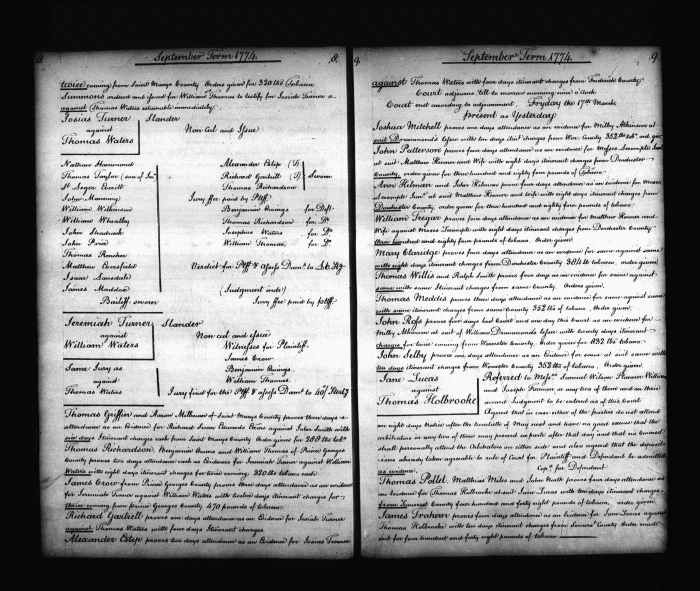 8. September Term 1774. 8.
twice coming from Saint Marys County Orders given for 320 lbs Tobacco
Summons ordered and issued for William Thomas to testify for Josiah Turner
against Thomas Waters returnable immediately.
Josias Turner
against
Thomas Waters
Slander
Non Cul and Issue
Nathan Hammond
Thomas Taylor (son of
St Leger Everitt
John Manning
William Wilkinson
William Wheatley
John Shadrick
John Price
Thomas Rencher
Matthew Eversfield
Isaac Lansdale
James Maddox
Bailiff sworn
Alexander Estep
Richard Gartrell
Thomas Richardson
Sworn
Jury fee paid by Ptff
Benjamin Owings for Deft
Thomas Richardson for Do
Josephus Waters for Do
William Thomas for Do
Verdict for Ptff & assess Dams. to
(Judgment nisi)
Jury fee paid by ptff
Jeremiah Turner
against
William Waters
Slander
Non cul and issue
Witnesses for Plaintiff
James Crow
Benjamin Owings
William Thomas
Same Jury as
against
Thomas Waters
Jury find for the Ptff & assess Dams. to
Thomas Griffin and Susan Millman of Saint Marys County proves three days
attendance as an Evidence for Richard Swan Edwards Evans against John Smith with
six days Itinerant charges each from Saint Marys County Order given for 288 lbs tobo.
Thomas Richardson, Benjamin Owens and William Thomas of Prince Georges
County proves two days attendance each as Evidences for Jeremiah Turner against William
Waters with eight days itinerant charges for twice coming. 320 lbs tobacco each.
James Crow from Prince Georges County proves three days attendance as an evidence
for Jeremiah Turner against William Waters with twelve days itinerant charges for
three coming from Prince Georges County 470 pounds of tobacco.
Richard Gartrell proves one days attendance as an Evidence for Josiah Turner
against Thomas Waters with four days Itinerant charges
Alexander Estep proves two days attendance as an Evidence for Josias Turner
9. September Term 1774. 9.
against Thomas Waters with four days itinerant charges from Frederick County
Court adjourns till to morrow morning nine o'Clock
Court met according to adjournment, Fryday the 17th March
Present as Yesterday
Joshua Mitchell proves one days attendance as an evidence for Milby Atkinson at
suit Drummond's lessee with ten days itint charges from Wor. County 352 lbs tob. ord. giv.
John Patterson proves four days attendance as an evidence for Moses
at suit Matthew Hosier and Wife with eight days itinerant charges from Dorchester
County, order given for three hundred and eighty four pounds of tobacco.
Ann Helman and John Helman prove four days attendance as an evidence for Moses
at suit Matthew Hosier and Wife with eight days itinerant charges from
Dorchester County, order given for three hundred and eighty four pounds of tobacco.
William Treegar proves four days attendance as an evidence for Matthew Hosier and
Wife against Moses with eight days itinerant charges from Dorchester County
three hundred and eighty four pounds of tobacco. Order given.
Mary Claridge proves four days attendance as an evidence for same against same
with eight days itinerant charges from Dorchester County 384 lb tobacco, order given
Thomas Willis and Ralph Smith proves four days as an evidence for same against
same with same Itinerant charges from same County. Orders given.
Thomas Meddis proves three days attendance as an evidence for same against same
with same itinerant charges from same County 352 lbs of tobacco, Order given.
John Ross proves five days last Court and one day this Court as an evidence for
Milby Atkinson at suit of William Drummonds lessee with twenty days itinerant
charges for twice coming from Worcester County, order given for 832 lbs tobacco.
John Selby proves one days attendance as an Evidence for same at suit same with
ten days itinerant charges from Worcester County 352 lbs of tobacco. Order given.
Jane Lucas
against
Thomas Holbrooke
Referred to Messrs. Samuel Wilson William
and Joseph or any two of them and on their
award Judgment to be entered as of this Court.
Agreed that in case either of the parties do not attend
on eight days Notice after the twentieth of May next and have no good excuse that the
arbitrators or any two of them may proceed ex parte after that day and that no Counsel
shall personally attend the Arbitrators on either side and also agreed that the
is and already taken agreeable to rule of Court for Plaintiff and Defendant be admitted
as evidence. for Defendant
Thomas Pollet, Matthias Miles and John Nuth proves four days attendance as
an evidence for Thomas Holbrooke at suit Jane Lucas with ten days itinerant charges
from Somerset County four hundred and forty eight pounds of tobacco, order given.
James Trahern proves four days attendance as an Evidence for Jane Lucas against
Thomas Holbrooke with ten days itinerant charges from Somerset County Order made
out for four hundred and forty eight pounds of tobacco